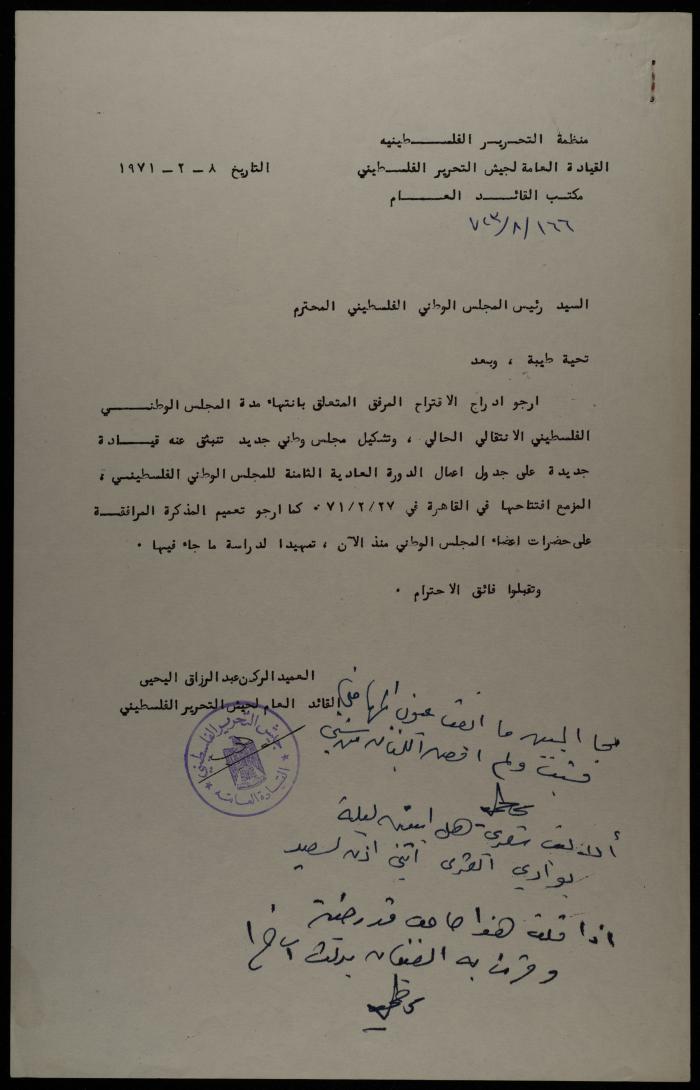 منظمة التحرير الفلسطينيه
القيادة العامة لجيش التحرير الفلسطيني
التاريخ ٨ - ٢ - ١٩٧١
مكتب القائد العام
١٦٦/٨/٧٤٣
السيد رئيس المجلس الوطني الفلسطيني المحترم
تحية طيبة ، وبعد
ارجو ادراج الاقتراح المرفق المتعلق بانتهاء مدة المجلس الوطني
الفلسطيني الانتقالي الحالي ، وتشكيل مجلس وطني جديد تنبثق عنه قيادة
جديدة على جدول اعمال الدورة العادية الثامنة للمجلس الوطني الفلسطيني ،
المزمع افتتاحها في القاهرة في ٧١/٢/٢٧ . كما ارجو تعميم المذكرة المرافقة
على حضرات اعضاء المجلس الوطني منذ الآن ، تمهيدا لدراسة ما جاء فيها .
وتقبلوا فائق الاحترام .
العميد الركن عبد الرزاق اليحيى
القائد العام لجيش التحرير الفلسطيني
جيش التحرير الفلسطيني
القيادة العامة
ولم
ألا ليت شعري هل ابيتن ليلة
بوادي القرى اني اذن لسعيد
اذا قلت هذا صاحب قد رضيته
وقرت به العينان بدلت آخرا